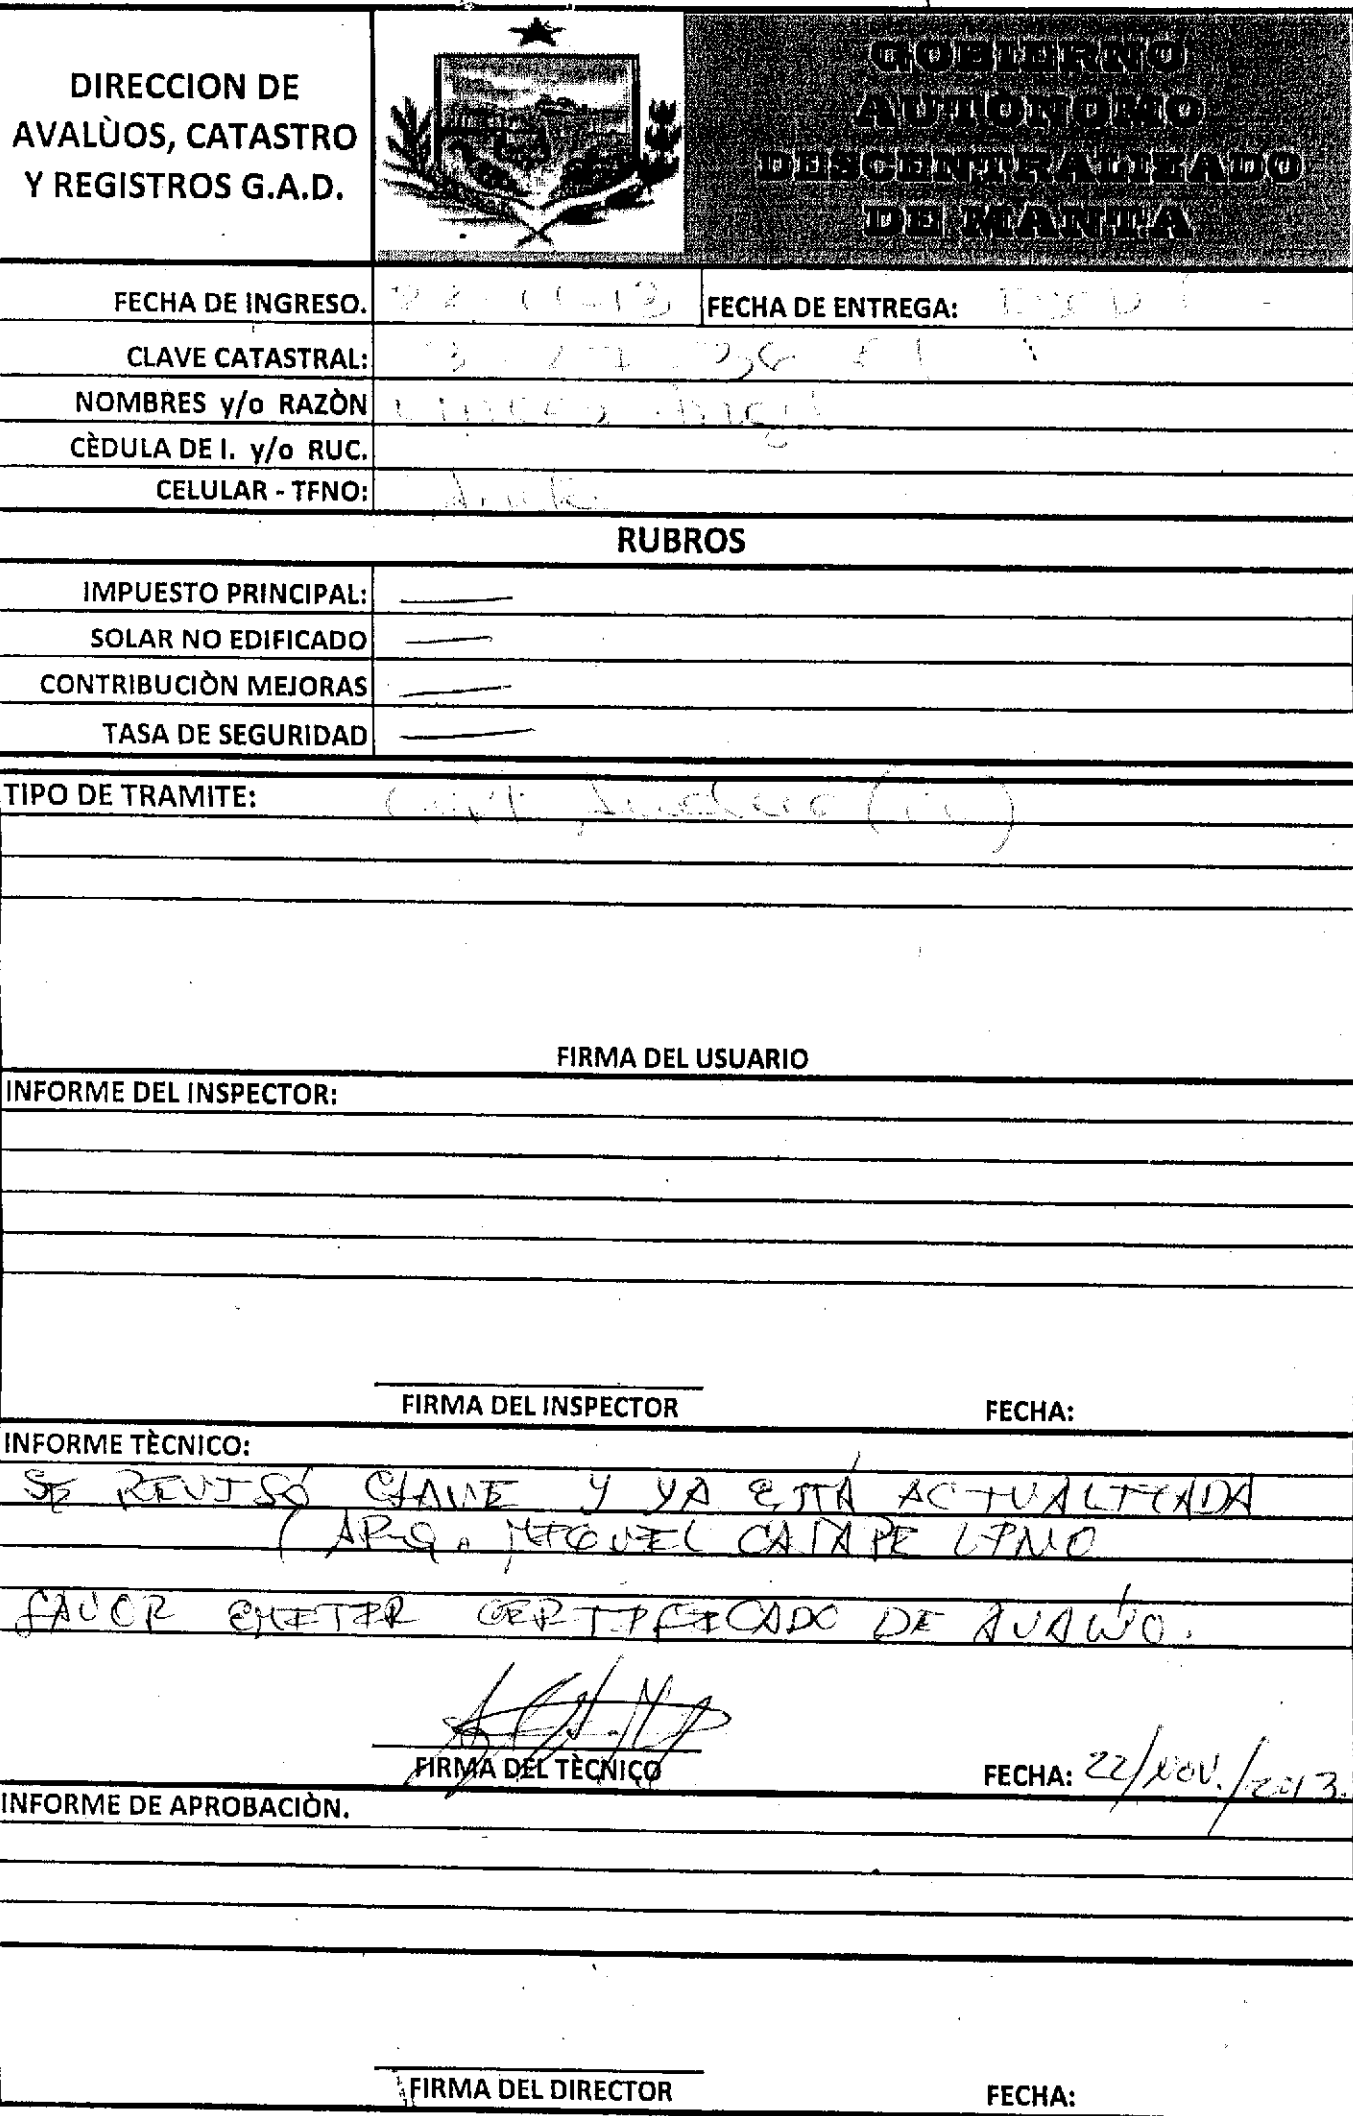 DIRECCION DE
AVALÙOS, CATASTRO
Y REGISTROS G.A.D.
GOBIERNO
AUTÒNOMO
DESCENTRALIZADO
DE MANTA
FECHA DE INGRESO. 22-11-13 FECHA DE ENTREGA:
CLAVE CATASTRAL:
NOMBRES y/o RAZÒN
CÈDULA DE I. y/o RUC.
CELULAR - TFNO:
RUBROS
IMPUESTO PRINCIPAL:
SOLAR NO EDIFICADO
CONTRIBUCIÒN MEJORAS
TASA DE SEGURIDAD
TIPO DE TRAMITE:
FIRMA DEL USUARIO
INFORME DEL INSPECTOR:
FIRMA DEL INSPECTOR FECHA:
INFORME TÈCNICO:
SE REVISÓ CLAVE Y YA ESTÁ ACTUALIZADA
(ARQ. MIGUEL CAMPE LINO
FAVOR EMITIR CERTIFICADO DE AVALÚO.
FIRMA DEL TÈCNICO FECHA: 22/NOV./2013.
INFORME DE APROBACIÒN.
FIRMA DEL DIRECTOR FECHA: